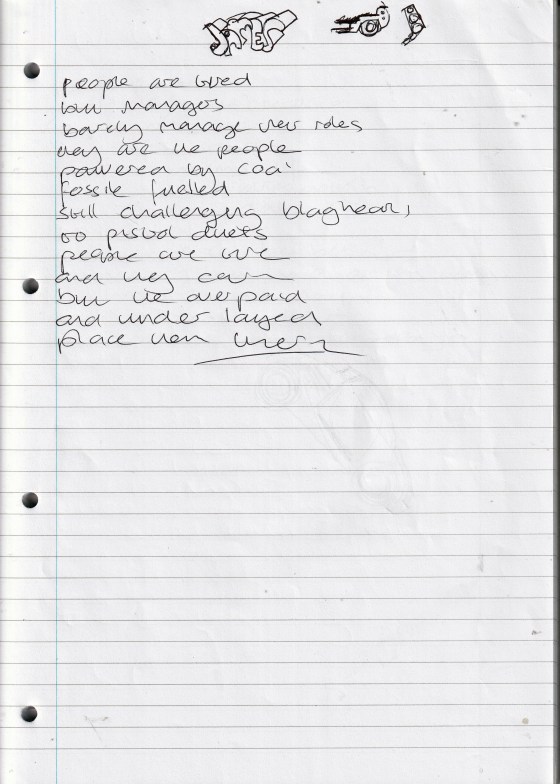 JAMES
people are
managers
barely manage their roles
they are the people
powered by coal
fossile fuelled
still challenging
to pistol duels
people are
and they can
but the overpaid
and under layed
place them